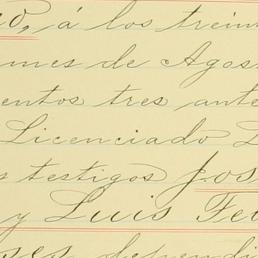 á los trein
mes de Agos
entos tres ante
Licenciado
testigos Jos
y Luis Fe